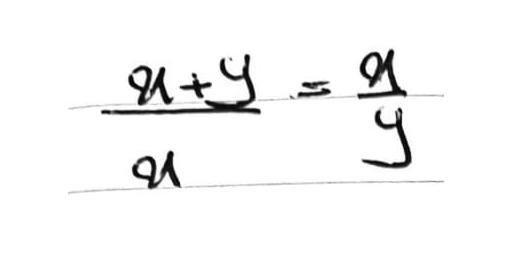 x+y/x = x/y